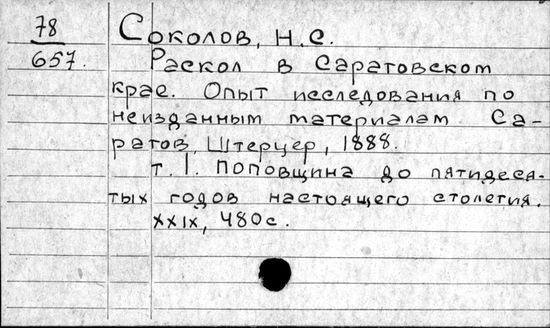 78
657.
Соколов, Н.С.
Раскол в Саратовском
крае. Опыт исследования по
неизданным материалам. Са-
ратов, Штерцер, 1888.
т. I. Поповщина до пятидеся-
тых годов настоящего столетия.
XXIX, 480с.